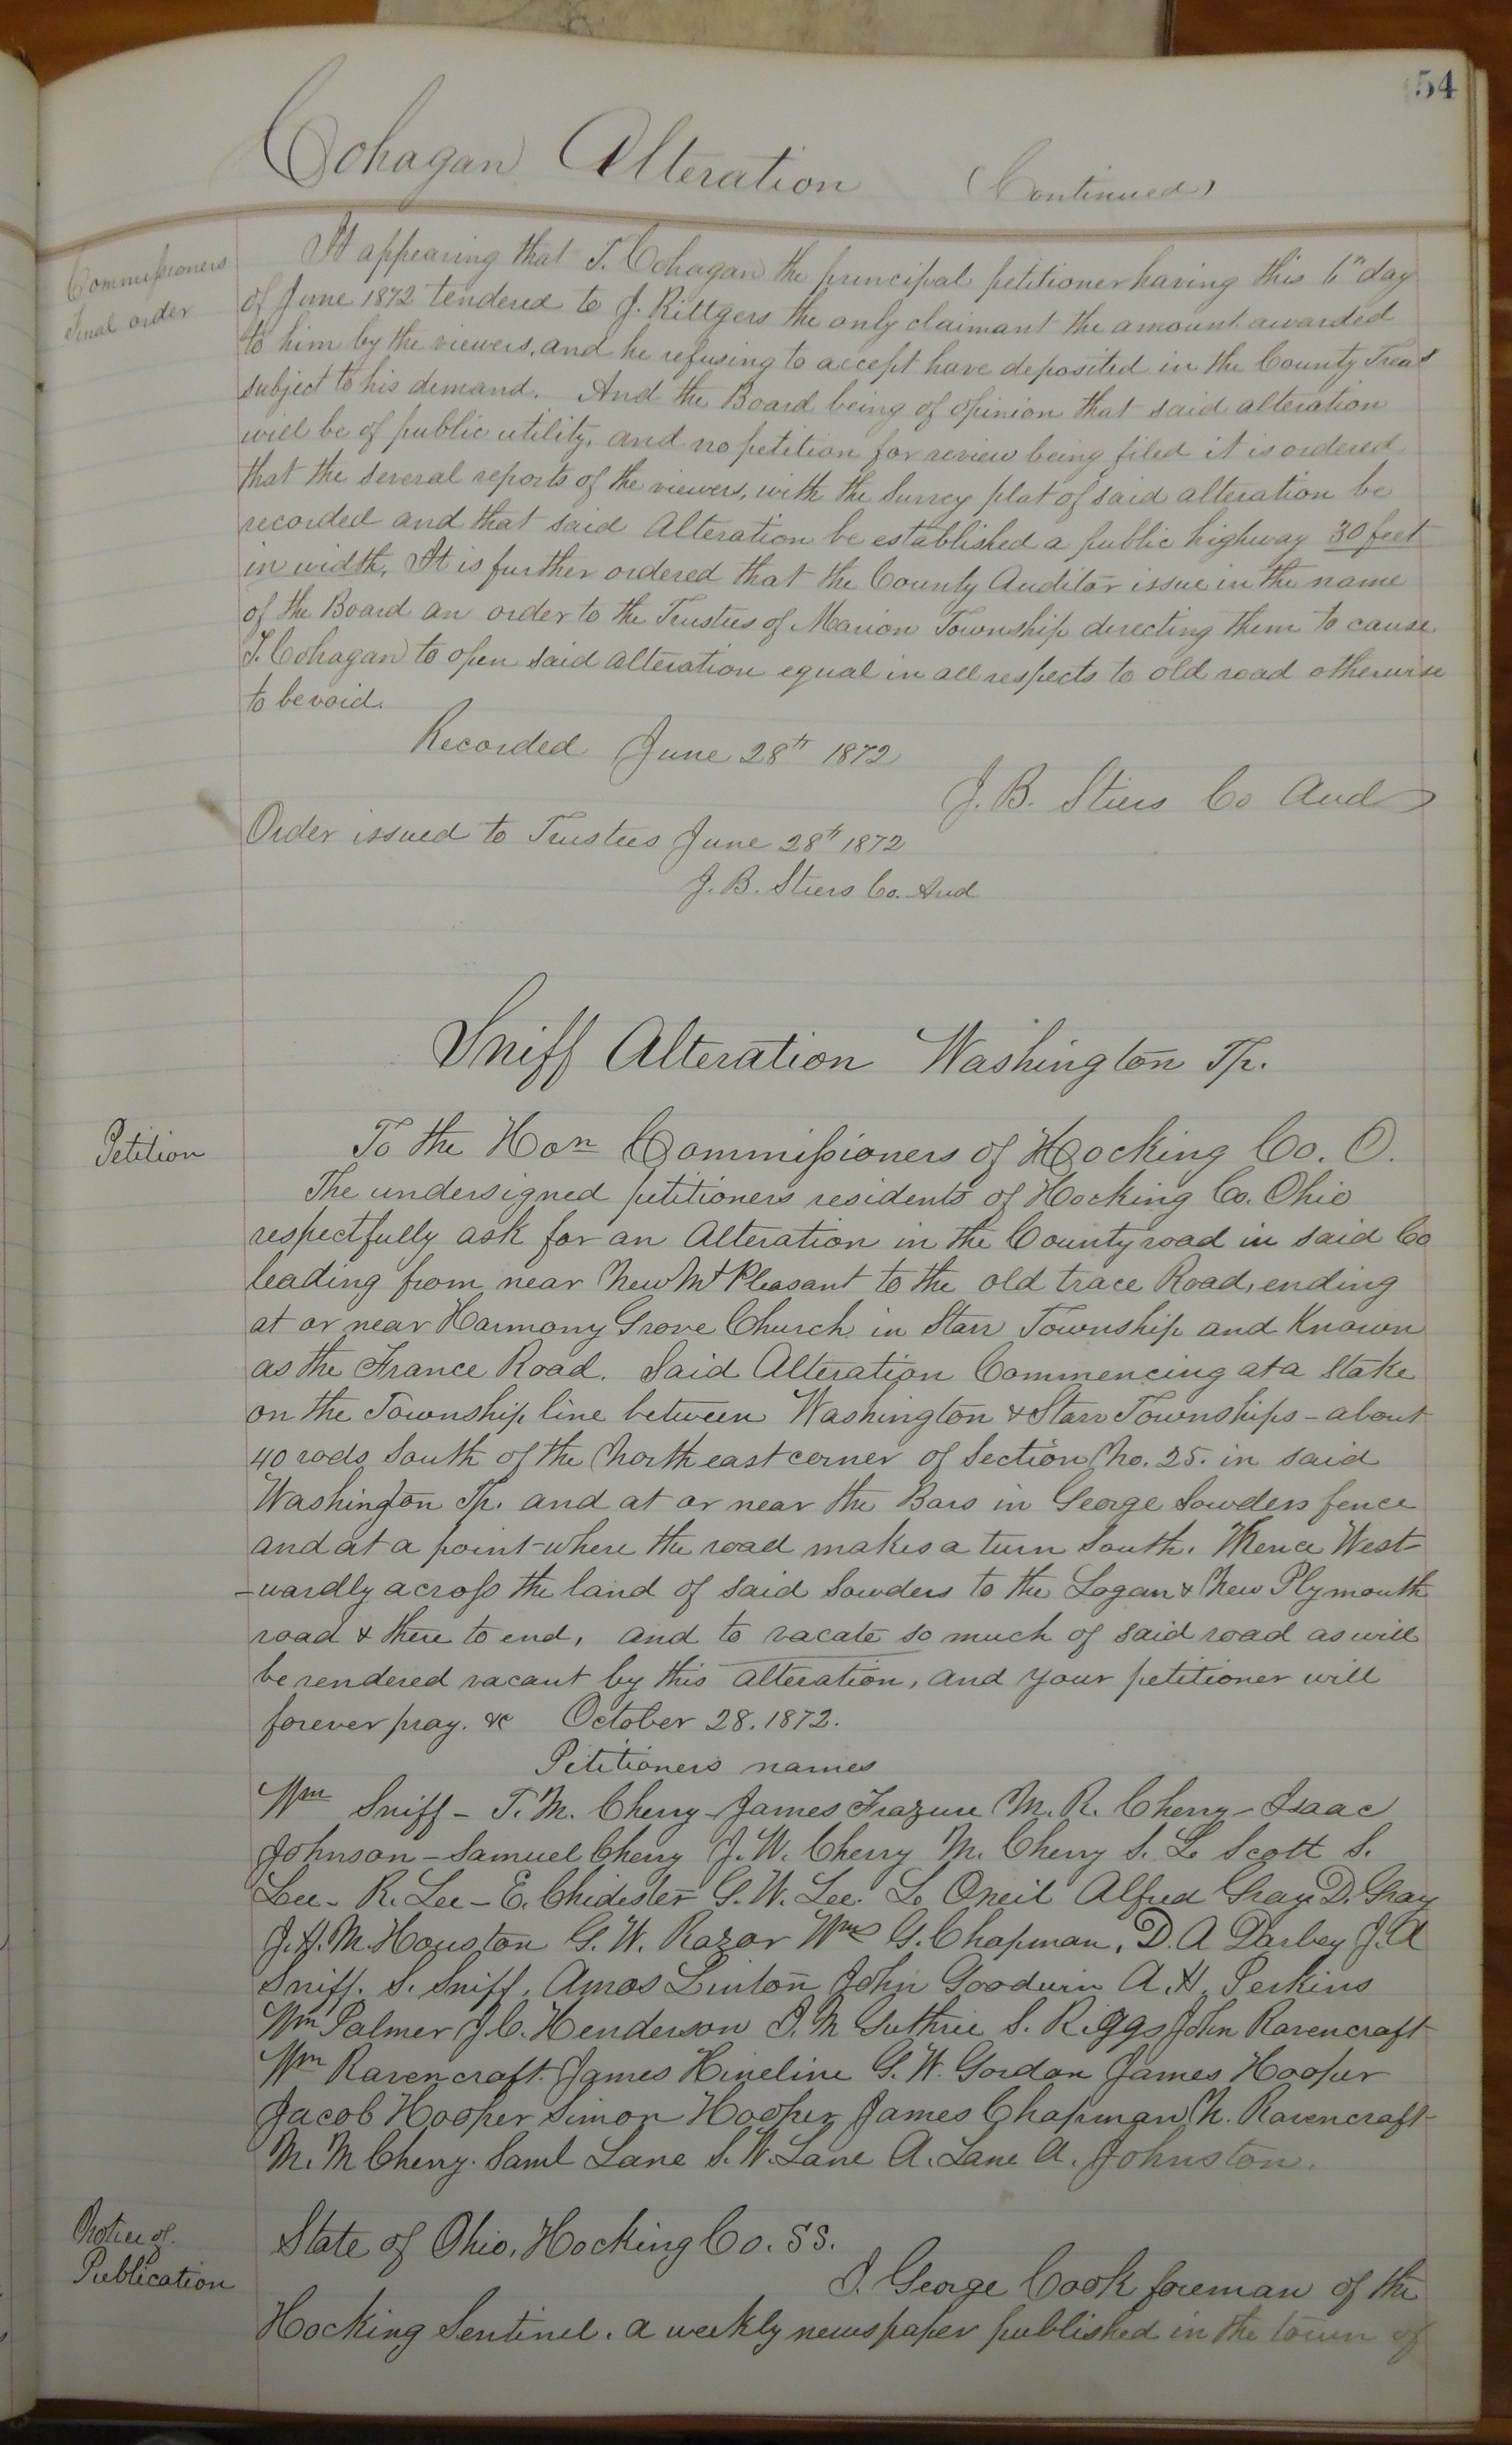 54
Cohagan Alteration (Continued)
Commissioners
Final order
It appearing that T. Cohagan the principal petitioner having this 6" day
of June 1872 tendered to J. Rittgers the only claimant the amount awarded
to him by the viewers, and he refusing to accept have deposited in the County Treas
subject to his demand. And the Board being of opinion that said alteration
will be of public utility, and no petition for review being filed it is ordered
that the several reports of the viewers, with the Survey plat of said alteration be
recorded and that said Alteration be established a public highway 30 feet
in width. It is further ordered that the County Auditor issue in the name
of the Board an order to the Trustees of Marion Township directing them to cause
T. Cohagan to open said alteration equal in all respects to old road otherwise
to be void.
Recorded June 28th 1872
J. B. Stiers Co Aud
Order issued to Trustees June 28th 1872
J. B. Stiers Co. Aud
Sniff Alteration Washington Tp.
Petition
To the Hon Commissioners of Hocking Co. O.
The undersigned petitioners residents of Hocking Co. Ohio
respectfully ask for an Alteration in the County road in said Co
leading from near New Mt Pleasant to the old trace Road, ending
at or near Harmony Grove Church in Starr Township and Known
as the France Road. Said Alteration Commencing at a Stake
on the Township line between Washington & Starr Townships - about
40 rods South of the North east corner of Section No. 25. in said
Washington Tp. and at or near the Bars in George Sowders fence
and at a point where the road makes a turn South. Thence West-
-wardly across the land of said Sowders to the Logan & New Plymouth
road & there to end, and to vacate so much of said road as will
be rendered vacant by this alteration, and your petitioner will
forever pray. &c October 28. 1872.
Petitioners names
Wm Sniff - T. M. Cherry - James Frazure M. R. Cherry - Isaac
Johnson - Samuel Cherry J. W. Cherry M. Cherry S. L. Scott S.
Lee - R. Lee - E. Chidester G. W. Lee. L. Oneil Alfred Gray. D. Gray
J. H. M. Houston G. W. Razor Wm G. Chapman, D. A Darbey J. A
Sniff. S. Sniff. Amos Linton John Goodwin A. H. Perkins
Wm Palmer J. C. Henderson I. M Guthrie S. Riggs John Ravencraft
Wm Ravencraft. James Hineline G. W. Gordon James Hooper
Jacob Hooper Simon Hooper James Chapman N. Ravencraft
M. M Cherry. Saml Lane S. W. Lane A. Lane A. Johnston.
Notice of
Publication
State of Ohio, Hocking Co. SS.
I. George Cook foreman of the
Hocking Sentinel. a weekly newspaper published in the town of